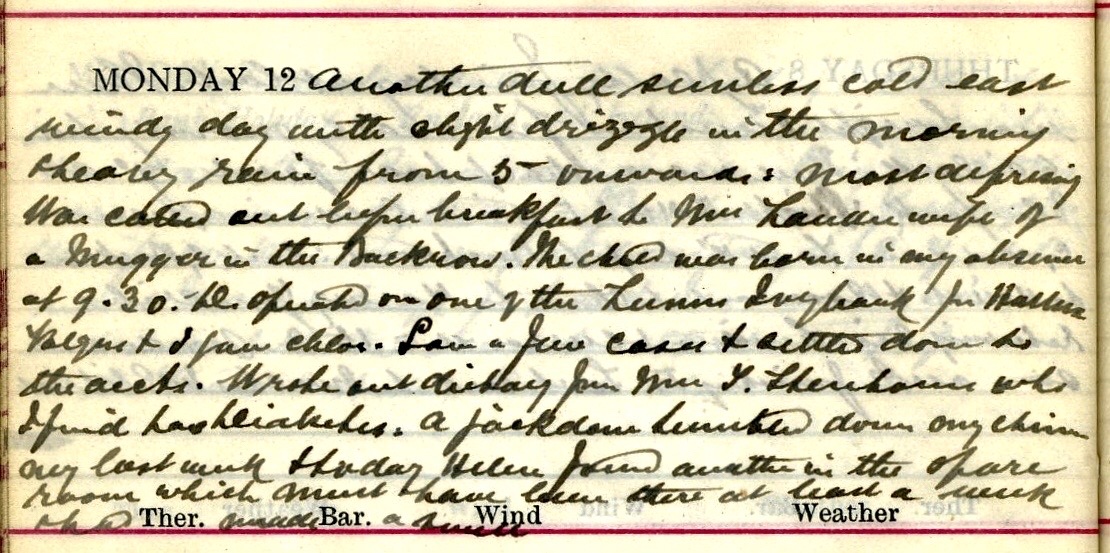 MONDAY 12 Another dull sunless cold east
windy day with slight drizzle in the morning
& heavy rain from 5 onwards: most depressing
Was called out before breakfast to Mrs Lauder wife of
a Mugger in the Backrow. The child was born in my absence
at 9.30. Dr operated on one of the Ivybank for
& I gave chlor. Saw a few cases & settled down to
the accts. Wrote out dietary for Mrs T. Stenhouse who
I find has Diabetes. A jackdaw tumbled down my chim
ney last week & today Helen found another in the spare
room which must have been there at least a week
made a smell
Ther. Bar. Wind Weather